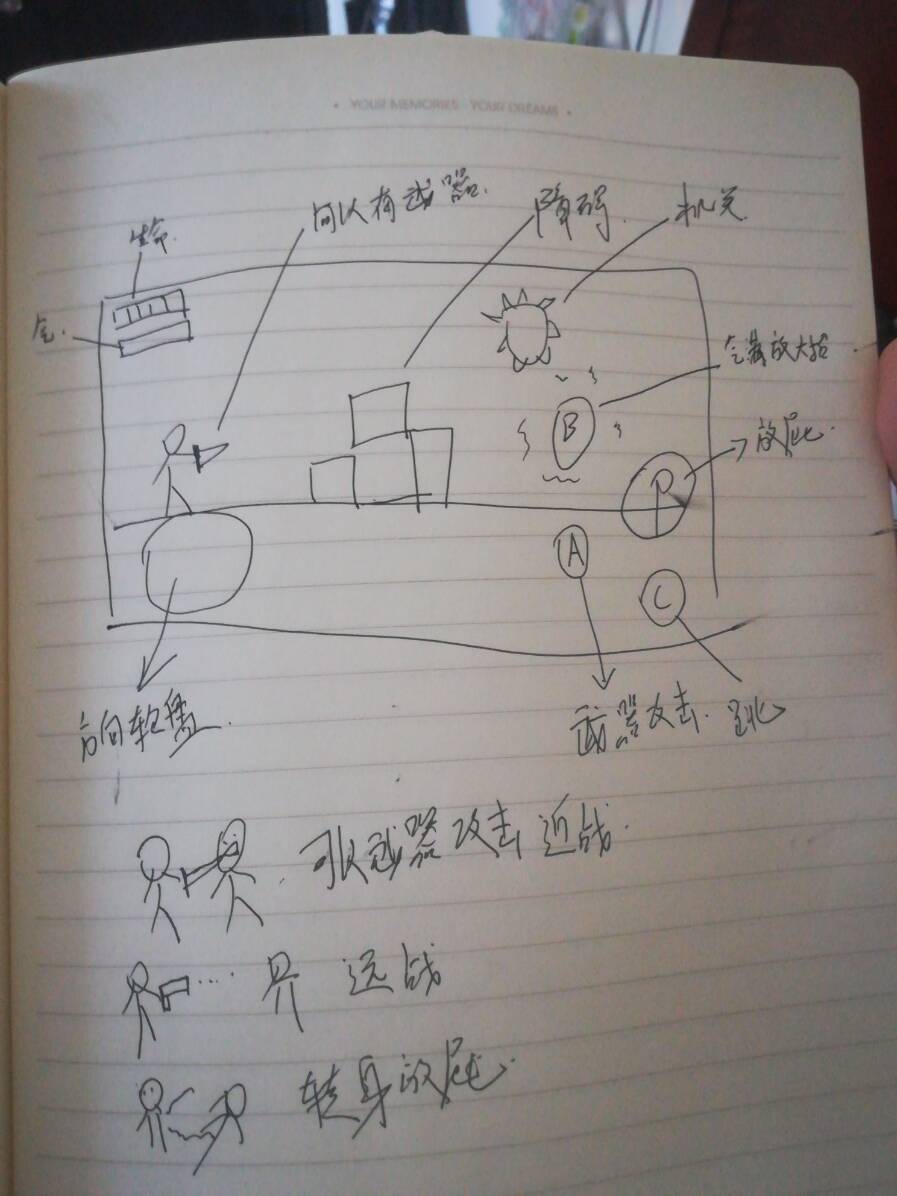 • YOUR MEMORIES · YOUR DREAMS •
可以有武器.
障碍.
机关
生命.
气.
气满放大招
B
放屁.
P
A
C
方向轮盘.
武器攻击.
跳
可以武器攻击近战.
远战
转身放屁.